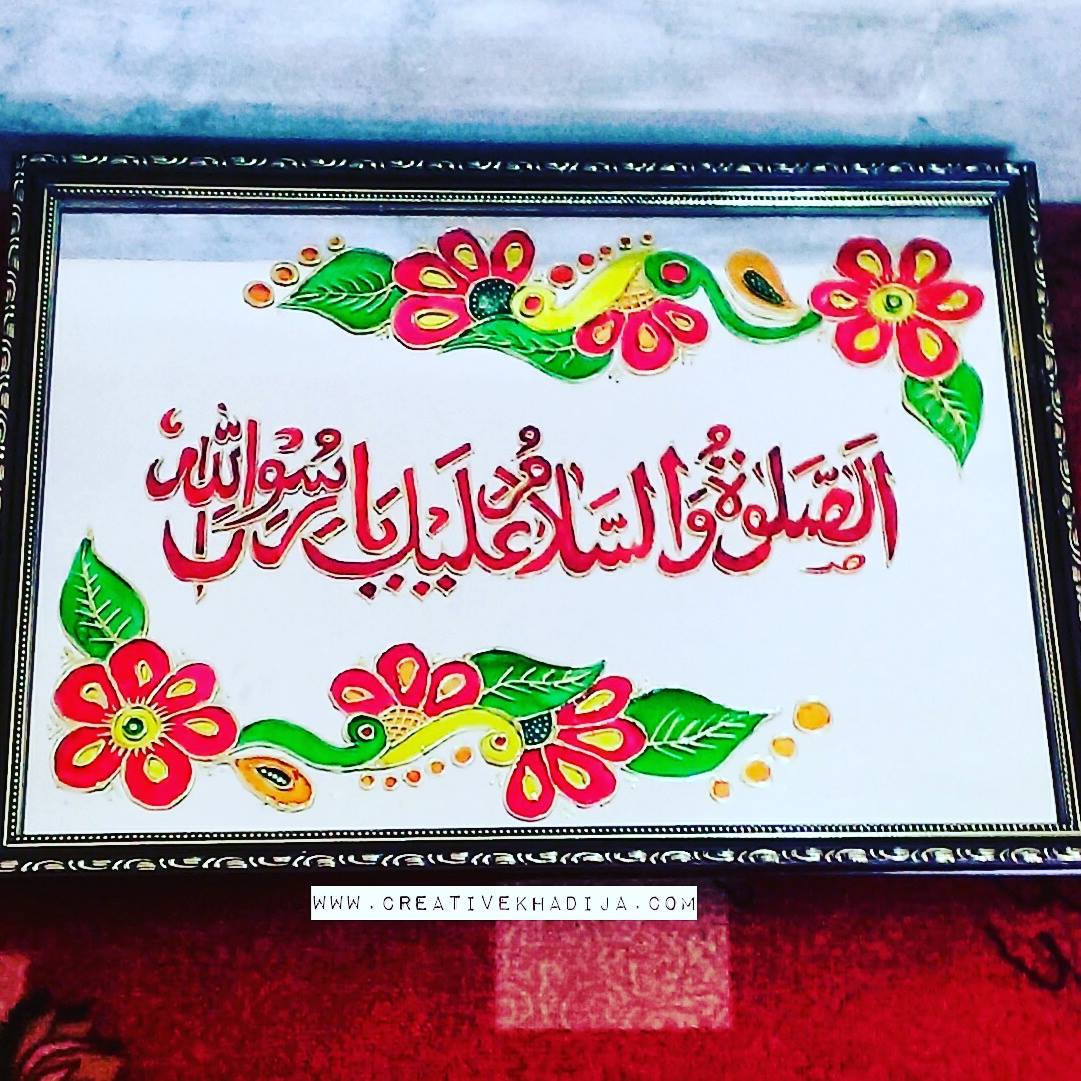 اَلصَّلوٰةُ وَالسَّلَامُ عَلَيْكَ يَا رَسُوْلَ اللهِ
WWW.CREATIVEKHADIJA.COM